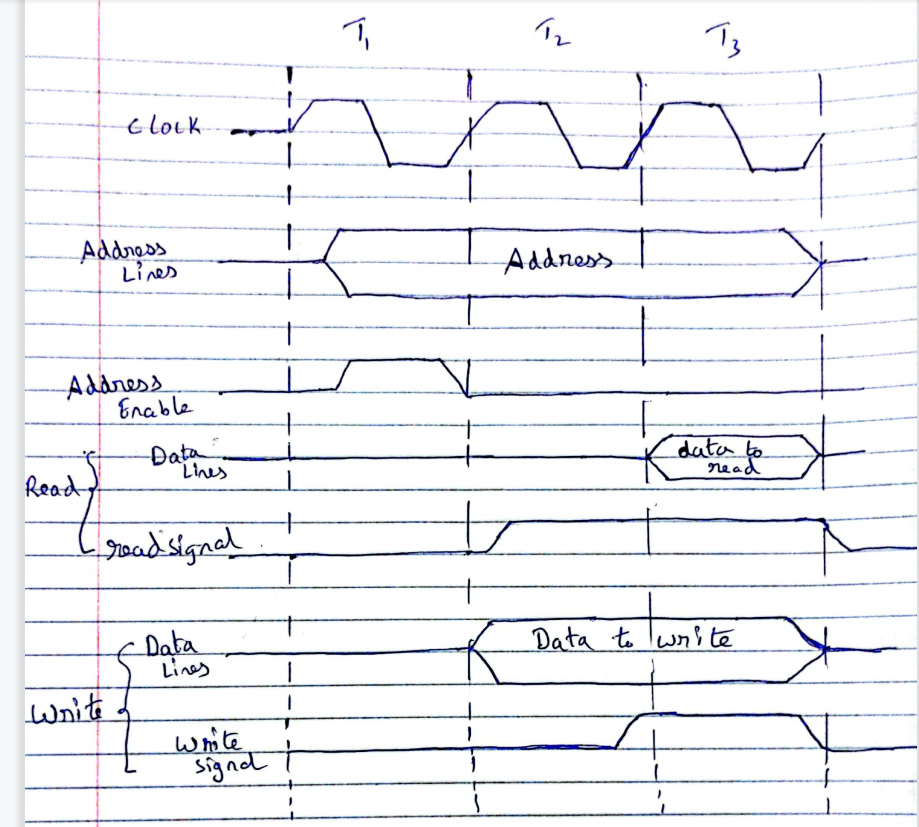 T1 T2 T3
Clock
Address
Lines
Address
Address
Enable
Data
Lines
data to
read
Read
read signal
Data
Lines
Data to write
Write
Write
signal